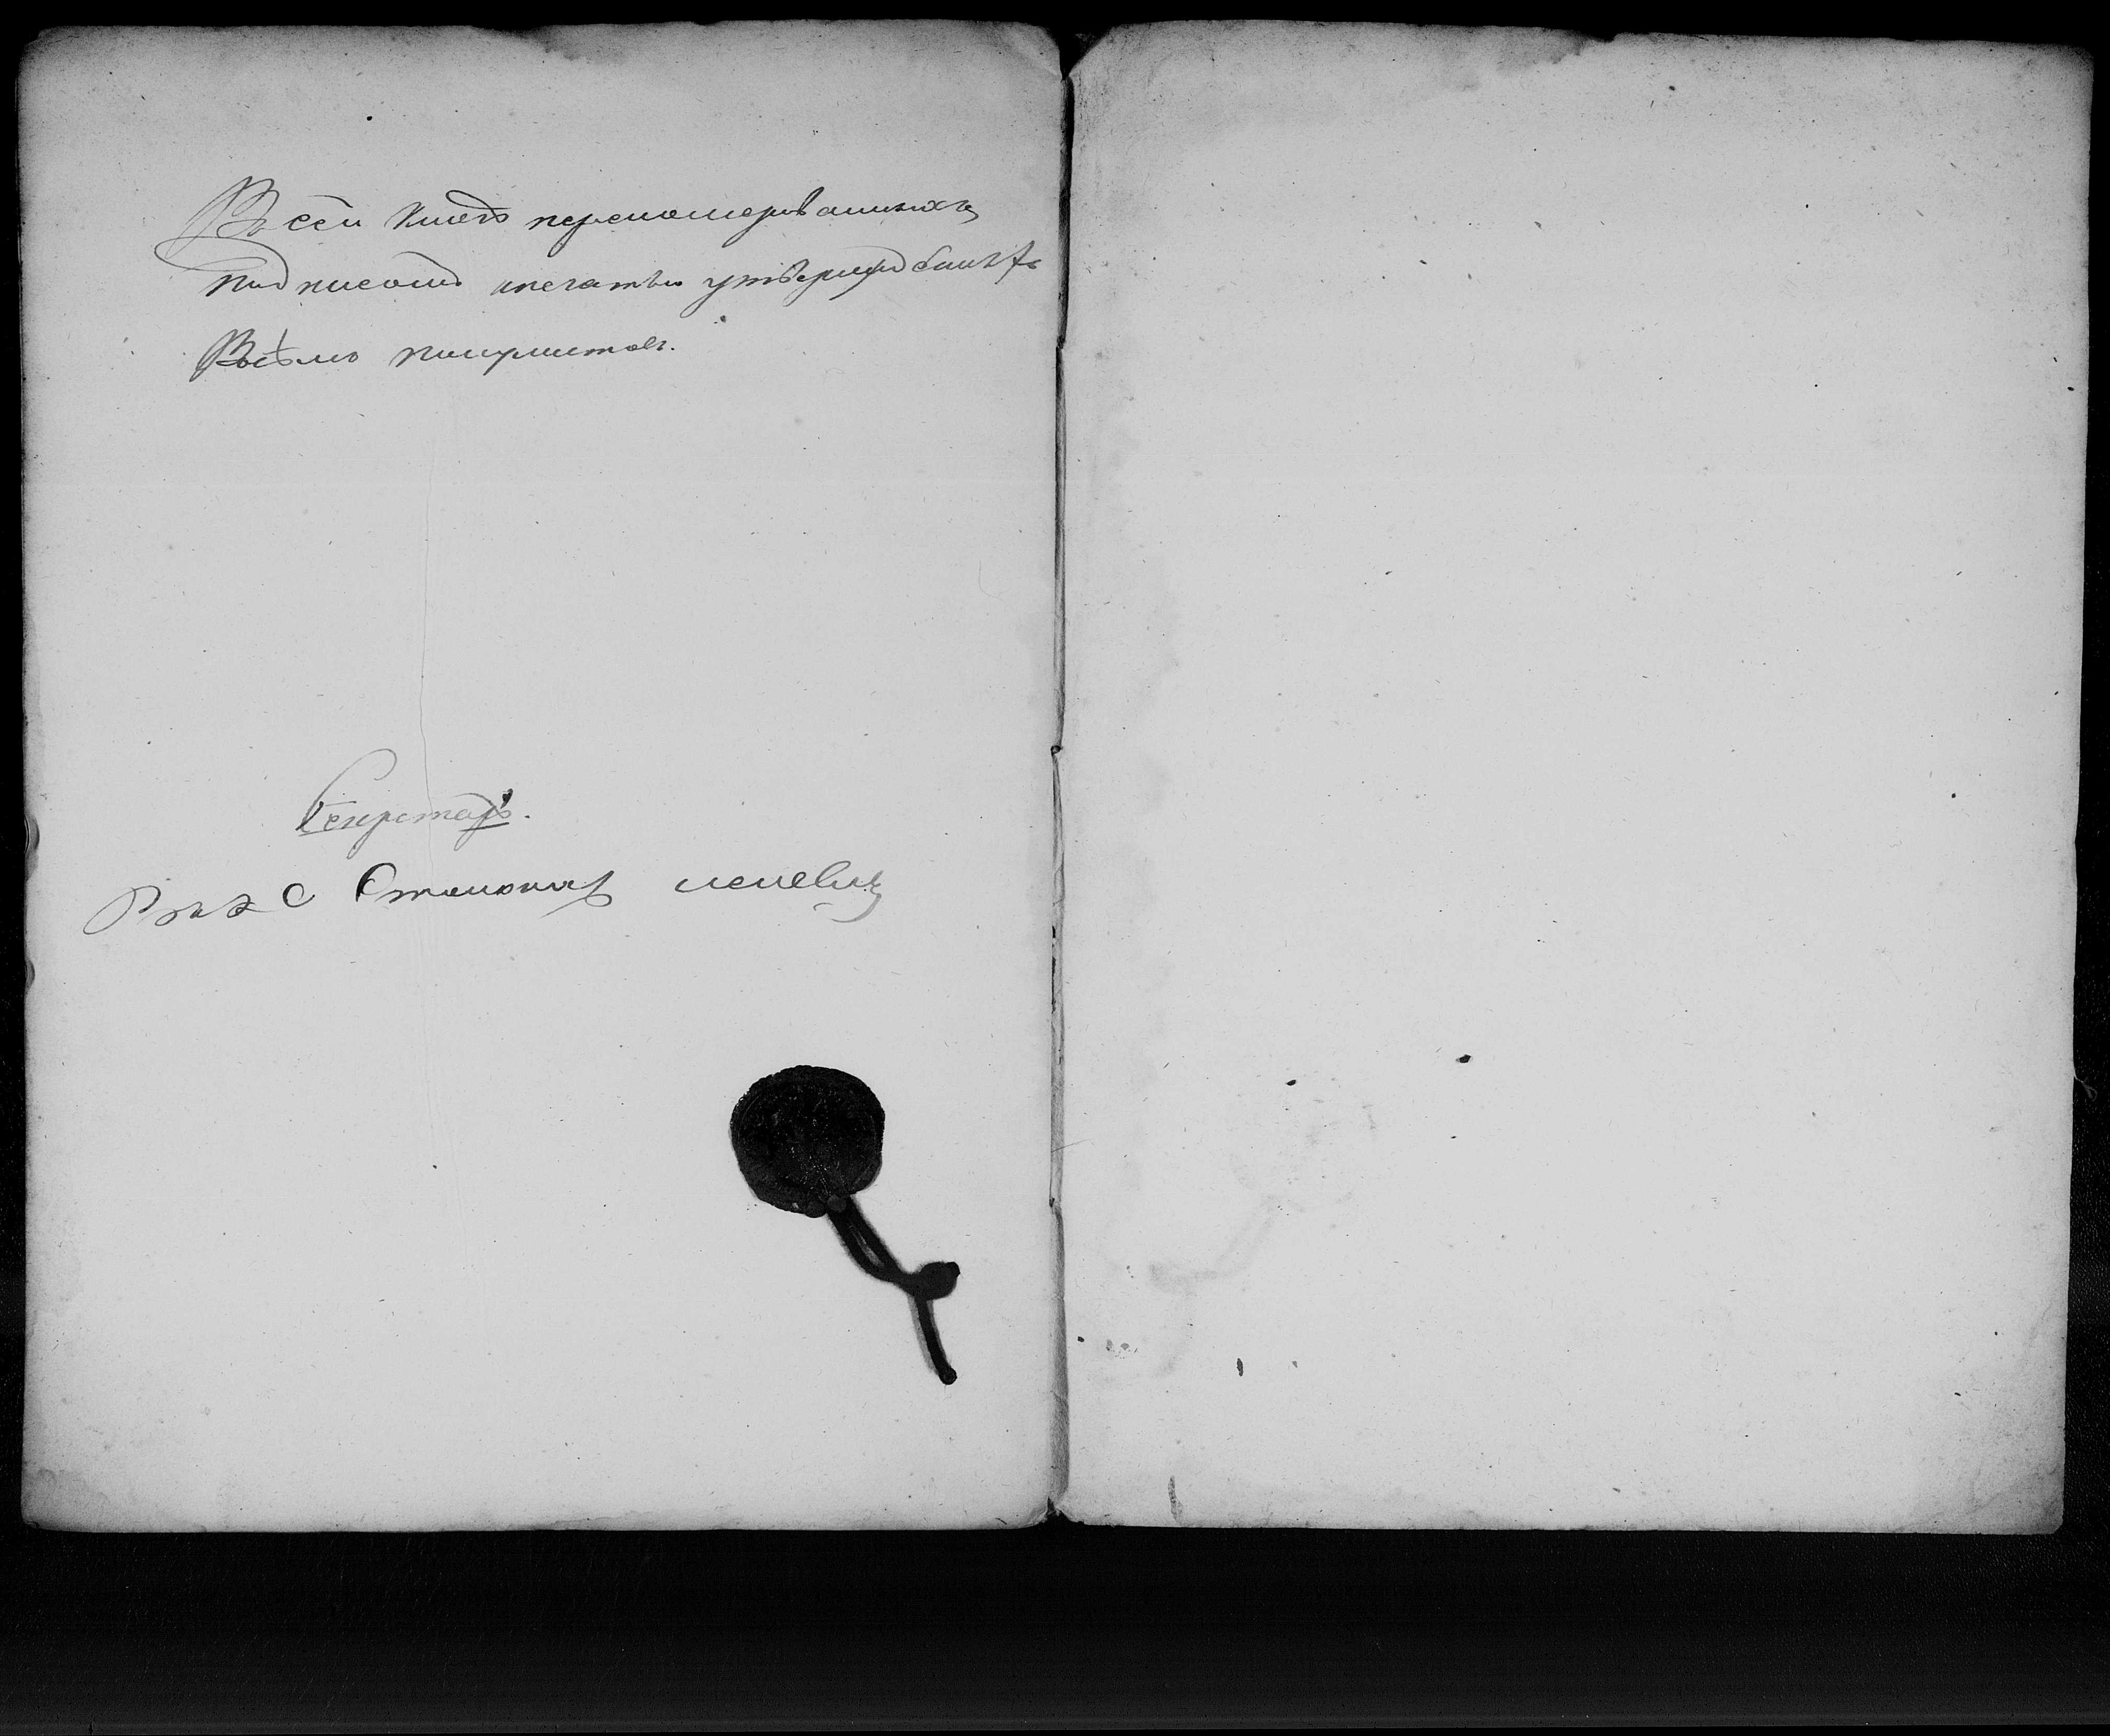 Въ сей книгѣ перономерованныхъ
подписомъ ипечатью утвержденныхъ
Восѣмь полулистовъ.
Секретарь.
Станиславъ